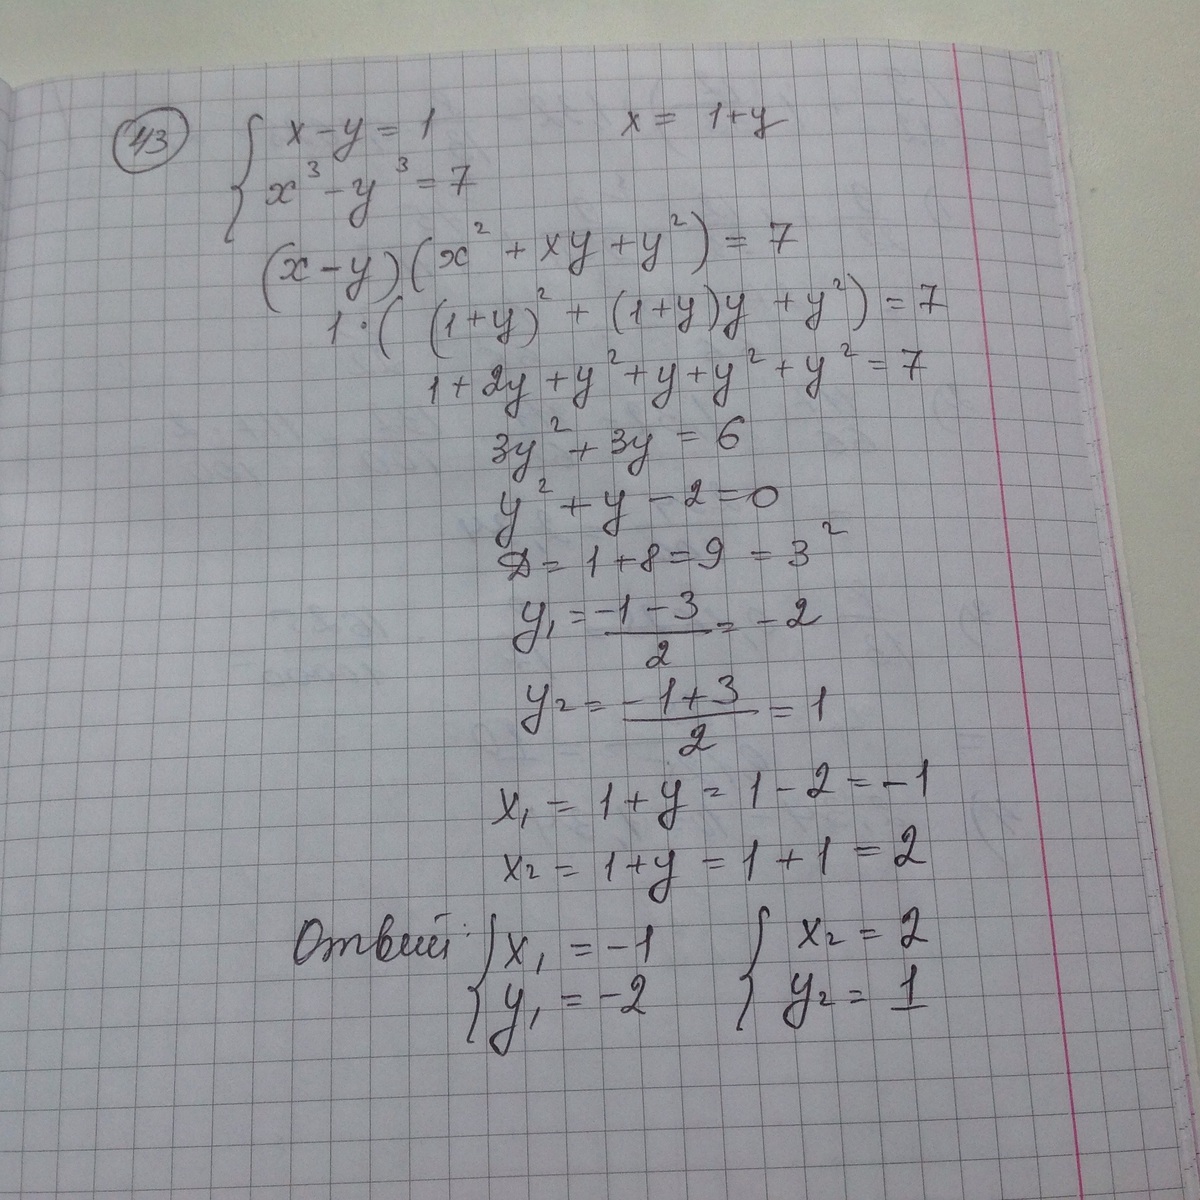 43 { x - y = 1 x = 1+y
x³ - y³ = 7
(x - y)(x² + xy + y²) = 7
1·( (1+y)² + (1+y)y + y²) = 7
1 + 2y + y² + y + y² + y² = 7
3y² + 3y = 6
y² + y - 2 = 0
D = 1 + 8 = 9 = 3²
y₁ = (-1 - 3)/2 = -2
y₂ = (-1 + 3)/2 = 1
x₁ = 1 + y = 1 - 2 = -1
x₂ = 1 + y = 1 + 1 = 2
Ответ: { x₁ = -1 { x₂ = 2
y₁ = -2 y₂ = 1